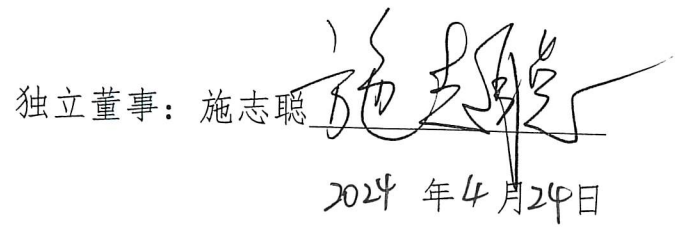 独立董事：施志聪 施志聪
2024 年 4 月 24 日